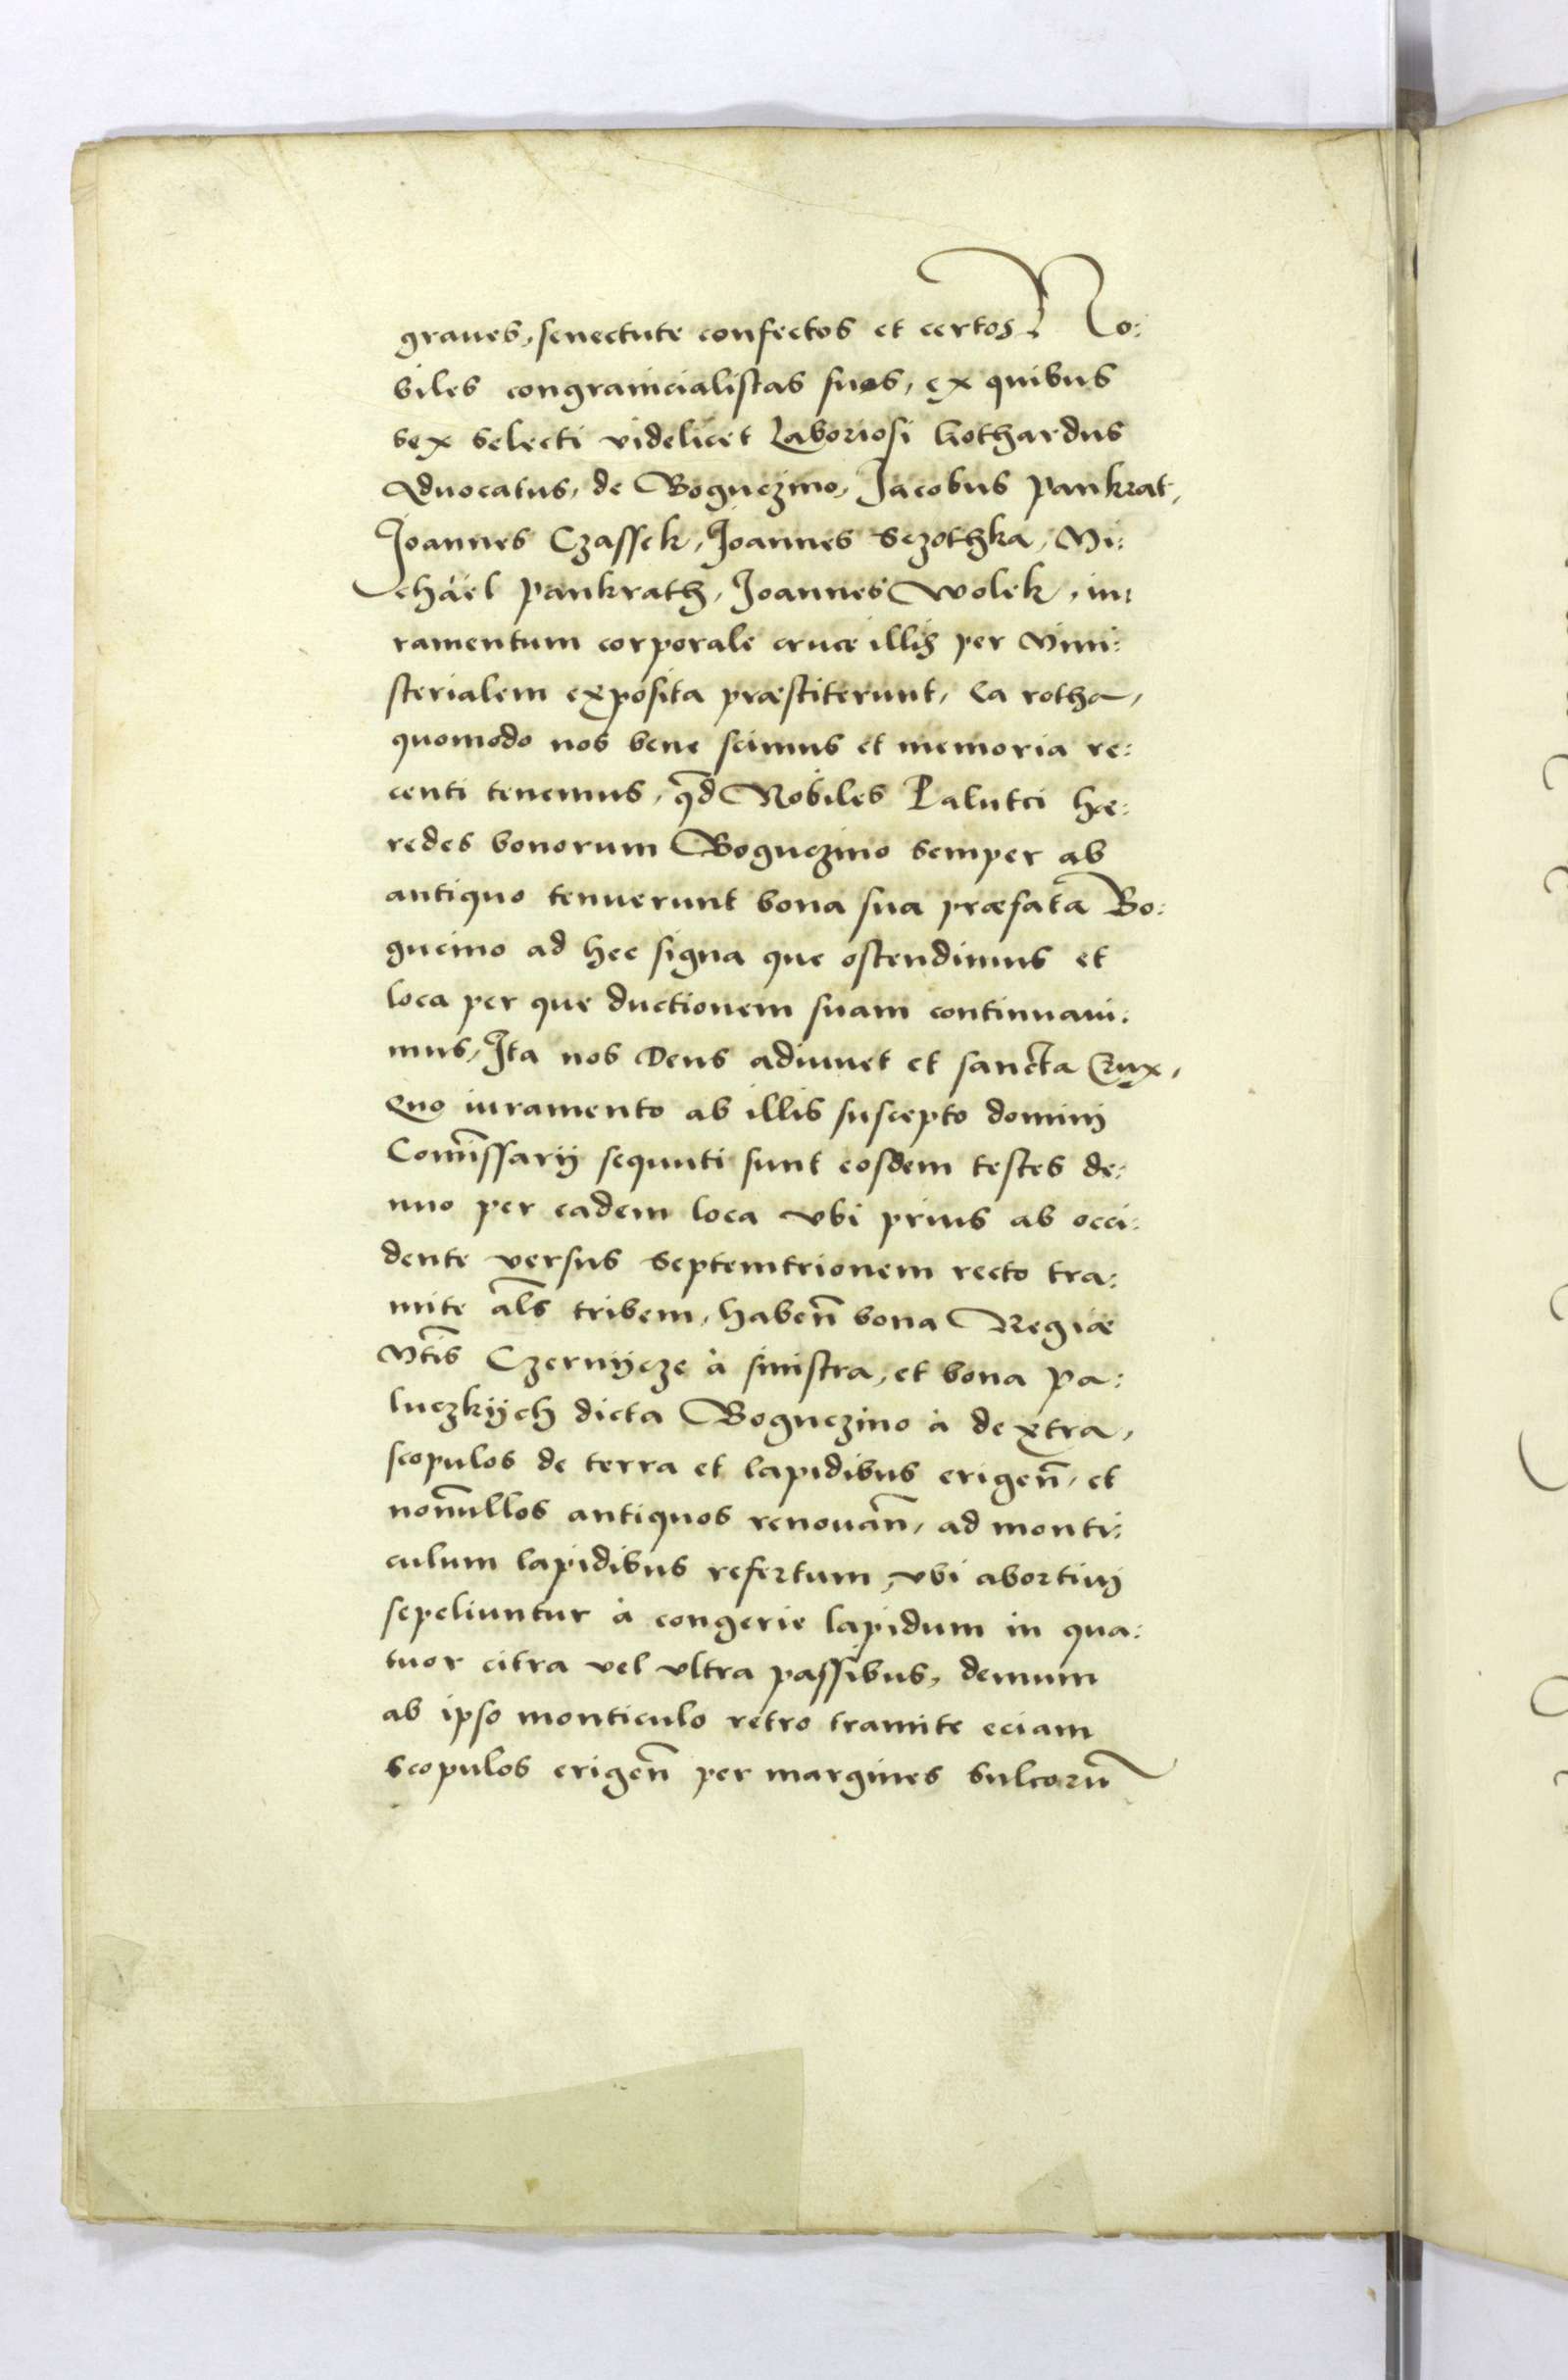 graues, senectute confectos et certos No:
biles congranicialistas suos, ex quibus
sex selecti videlicet Laboriosi Gothardus
Aduocatus, de Boguczino, Jacobus Pankrat,
Joannes Czassek, Joannes Sczothka, Mi:
chäel Pankrath, Joannes Wolek, iu:
ramentum corporale cruce illis per Mini:
sterialem exposita præstiterunt, Ea rotha,
quomodo nos bene scimus et memoria re:
centi tenemus, qd̄ Nobiles Palutci hæ:
redes bonorum Boguczino semper ab
antiquo tenuerunt bona sua præfata Bo:
gucino ad hec signa que ostendimus et
loca per que ductionem suam continuaui:
mus, Ita nos Deus adiuuet et sancta Crux,
Quo iuramento ab illis suscepto domini
Com̄issarij sequuti sunt eosdem testes de:
nuo per eadem loca vbi prius ab occi:
dente versus septemtrionem recto tra:
mite al̄s tribem, haben̄ bona Regiæ
Mt̄is Czernijcze à sinistra, et bona Pa:
luczkijch dicta Boguczino à dextra,
scopulos de terra et lapidibus erigen̄, et
non̄ullos antiquos renouan̄, ad monti:
culum lapidibus refertum, vbi abortiui
sepeliuntur à congerie lapidum in qua:
tuor citra vel vltra passibus, demum
ab ipso monticulo retro tramite eciam
scopulos erigen̄ per margines sulcorū